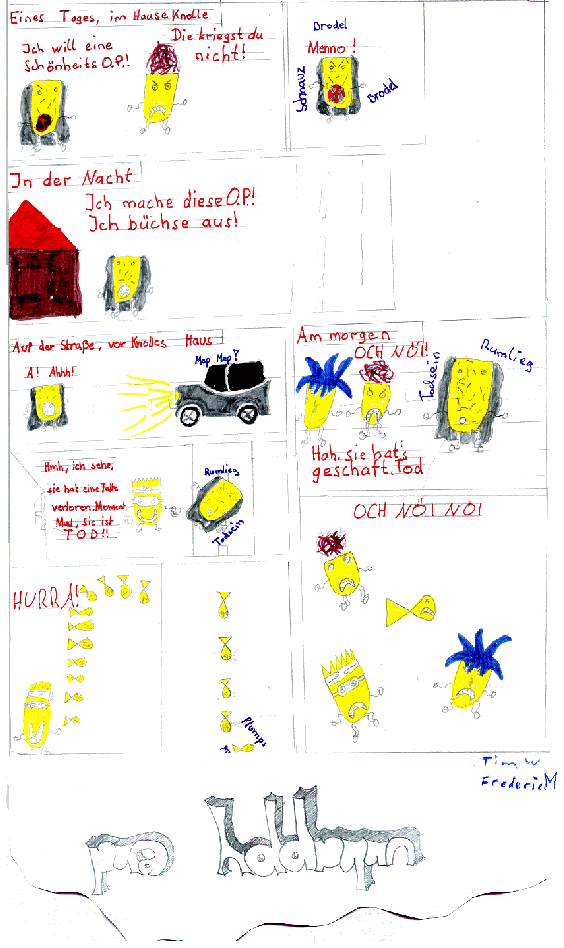 Eines Tages, im Hause Knolle
Ich will eine
Schönheits O.P.!
Die kriegst du
nicht!
Brodel
Menno!
Schnauz
Brodel
In der Nacht
Ich mache diese O.P.!
Ich büchse aus!
Auf der Straße, vor Knolles Haus
A! Ahhh!
Möp Möp?
Am morgen
OCH NÖ!!
Todsein
Rumlieg
Hah. sie hat's
geschaft. Tod
Hmh, ich sehe,
sie hat eine Falte
verloren. Moment
Mal, sie ist
TOD!!
Rumlieg
Todsein
OCH NÖ! NÖ!
HURRA!
Plomps
Tim W
Frederic M
unhappy end